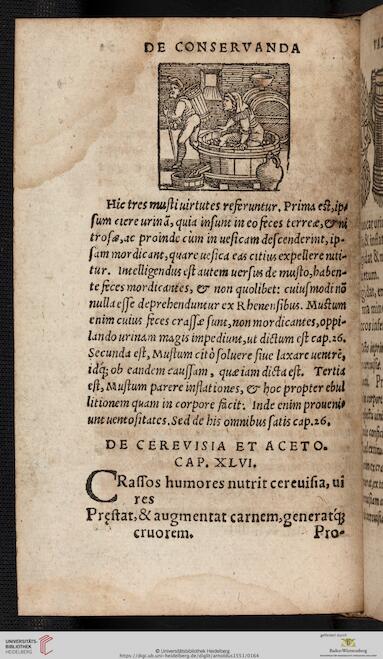 DE CONSERVANDA
Hic tres musti uirtutes referuntur. Prima est, ip-
sum ciere urinā, quia insunt in eo feces terreæ, & ni
trosæ, ac proinde cùm in uesicam descenderint, ip-
sam mordicant, quare uesica eas citius expellere niti-
tur. Intelligendus est autem uersus de musto, haben-
te feces mordicantes, & non quolibet: cuiusmodi nō
nulla esse deprehenduntur ex Rhenensibus. Mustum
enim cuius feces crassæ sunt, non mordicantes, oppi-
lando urinam magis impediunt, ut dictum est cap. 26.
Secunda est, Mustum citò soluere siue laxare uentrē,
idq; ob eandem caussam, quæ iam dicta est. Tertia
est, Mustum parere inflationes, & hoc propter ebul
litionem quam in corpore facit. Inde enim proueni-
unt uentositates. Sed de his omnibus satis cap. 26.
DE CEREVISIA ET ACETO.
CAP. XLVI.
CRassos humores nutrit cereuisia, ui
res
Pręstat, & augmentat carnem, generatq;
cruorem.
Pro-
UNIVERSITÄTS-
BIBLIOTHEK
HEIDELBERG
© Universitätsbibliothek Heidelberg
https://digi.ub.uni-heidelberg.de/diglit/arnoldus1551/0164
gefördert durch
Baden-Württemberg